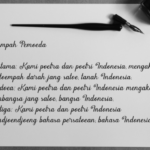 mpah Pemoeda
tama: Kami poetra dan poetri Indonesia, mengak
toempah darah jang satoe, tanah Indonesia.
doea: Kami poetra dan poetri Indonesia mengak
bangsa jang satoe, bangsa Indonesia.
tiga: Kami poetra dan poetri Indonesia
djoendjoeng bahasa persatoean, bahasa Indonesia